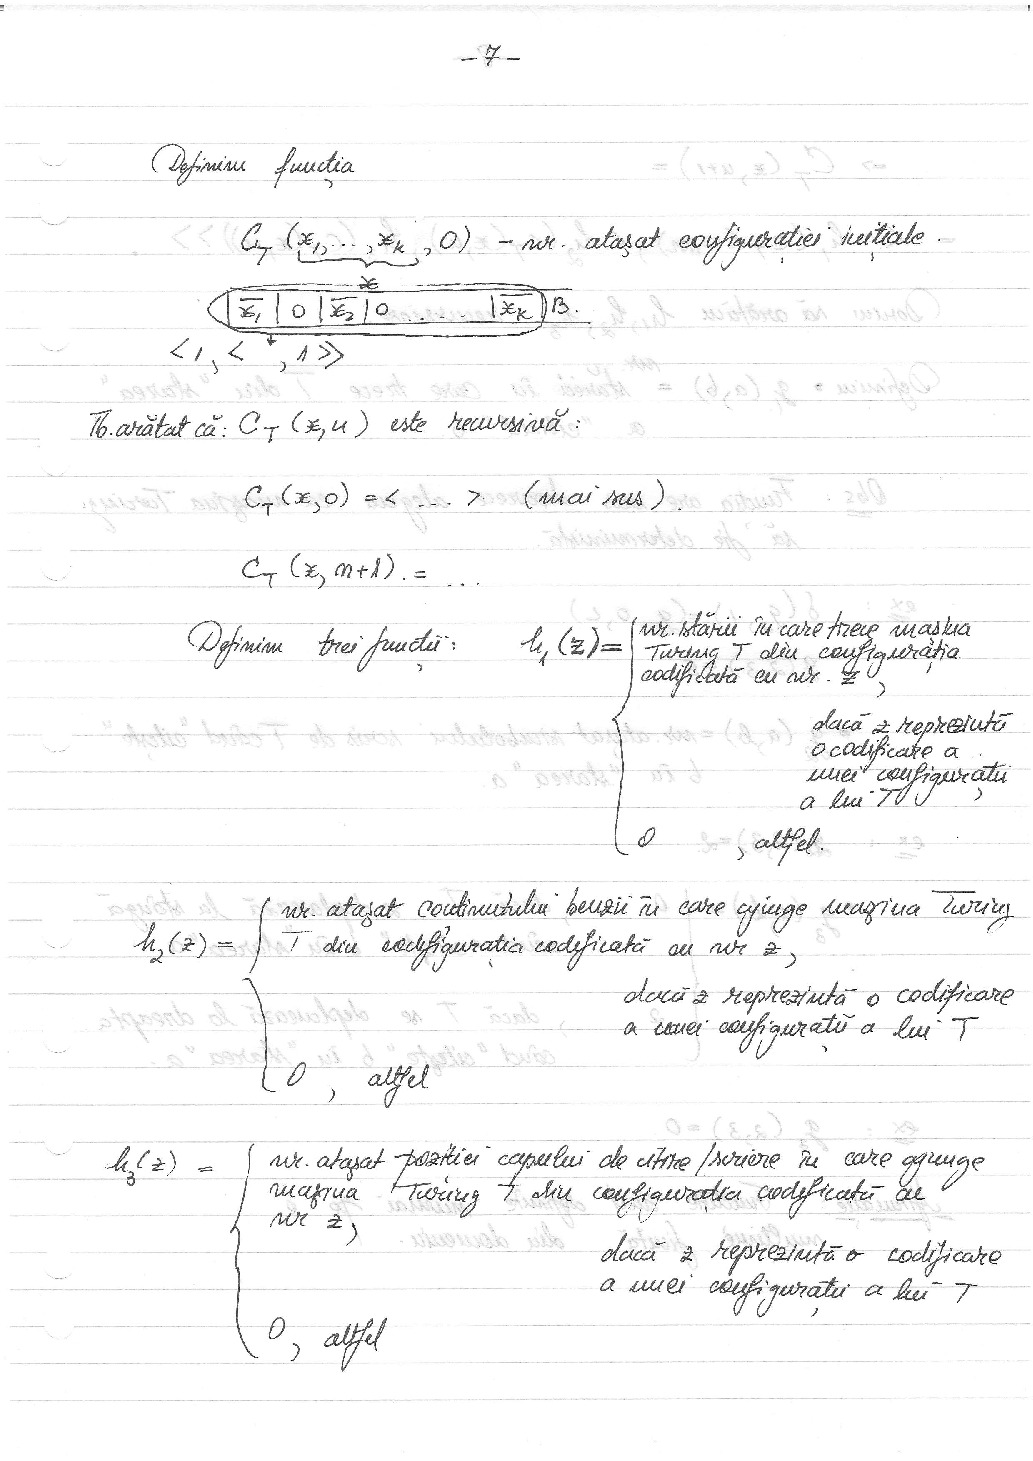 - 7 -
Definim funcția
C_T (x_1, ..., x_k, 0) - nr. atașat configurației inițiale.
x
| x̄_1 | 0 | x̄_2 | 0 .... | x̄_k | B.
< 1, < , 1 >>
Tb. arătat că: C_T (x, n) este recursivă:
C_T (x, 0) = < ... > (mai sus).
C_T (x, n+1) = ...
Definim trei funcții: h_1(z) = { nr. stării în care trece mașina
Turing T din configurația
codificată cu nr. z,
dacă z reprezintă
o codificare a
unei configurații
a lui T
0 , altfel.
h_2(z) = { nr. atașat conținutului benzii în care ajunge mașina Turing
T din configurația codificată cu nr z,
dacă z reprezintă o codificare
a unei configurații a lui T
0 , altfel
h_3(z) = { nr. atașat poziției capului de citire/scriere în care ajunge
mașina Turing T din configurația codificată cu
nr z,
dacă z reprezintă o codificare
a unei configurații a lui T
0, altfel